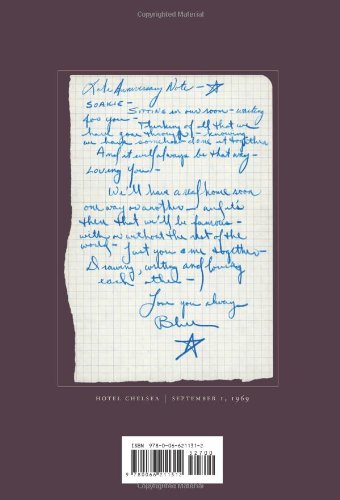 Late Anniversary Note -
SOAKIE -
SITTING in our room - waiting
for you - Thinking of all that we
have gone through - knowing
we have somehow done it together
And it will always be that way -
Loving You -
We'll have a real home soon
one way or another - and its
there that we'll be famous -
with or without the rest of the
world - Just you & me together -
Drawing, writing and loving
each other -
Love you always
Blue
HOTEL CHELSEA | SEPTEMBER 1, 1969
ISBN 978-0-06-621131-2
52700
9 780066 211312